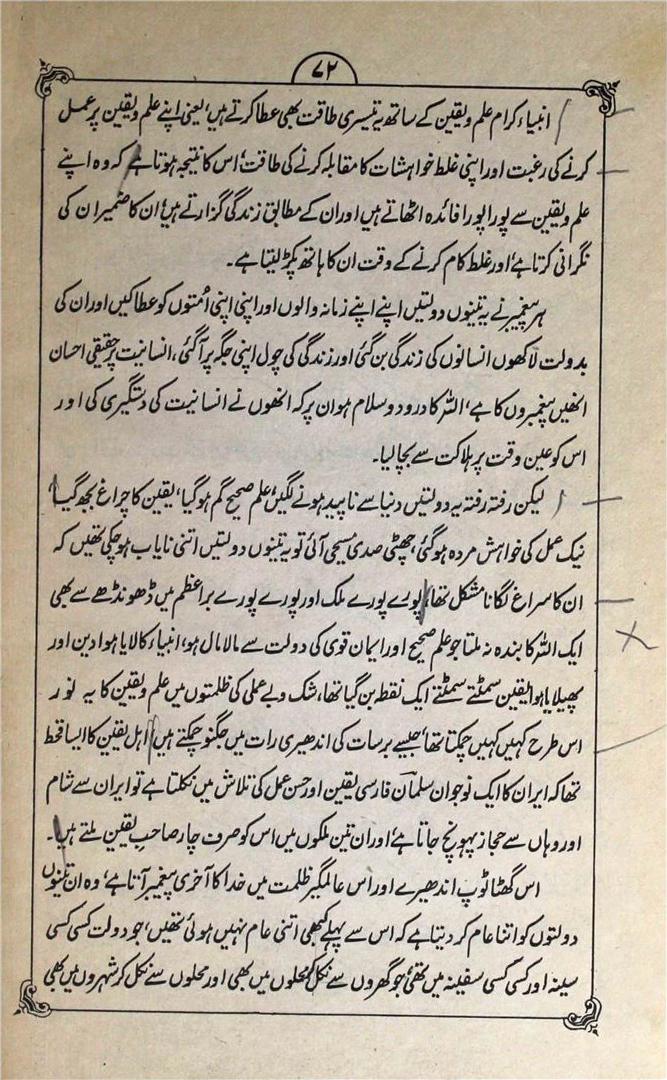 ۷۲
انبیاء کرام علم ویقین کے ساتھ یہ تیسری طاقت بھی عطا کرتے ہیں، یعنی اپنے علم ویقین پر عمل
کرنے کی رغبت اور اپنی غلط خواہشات کا مقابلہ کرنے کی طاقت، اس کا نتیجہ ہوتا ہے کہ وہ اپنے
علم ویقین سے پورا پورا فائدہ اٹھاتے ہیں اور ان کے مطابق زندگی گزارتے ہیں، ان کا ضمیر ان کی
نگرانی کرتا ہے، اور غلط کام کرنے کے وقت ان کا ہاتھ پکڑ لیتا ہے۔
ہر پیغمبر نے یہ تینوں دولتیں اپنے اپنے زمانہ والوں اور اپنی اپنی اُمتوں کو عطا کیں اور ان کی
بدولت لاکھوں انسانوں کی زندگی بن گئی اور زندگی کی چول اپنی جگہ پر آگئی، انسانیت پر حقیقی احسان
انھیں پیغمبروں کا ہے، اللہ کا درود و سلام ہو ان پر کہ انھوں نے انسانیت کی دستگیری کی اور
اس کو عین وقت پر ہلاکت سے بچالیا۔
لیکن رفتہ رفتہ یہ دولتیں دنیا سے ناپید ہونے لگیں، علم صحیح گم ہوگیا، یقین کا چراغ بجھ گیا
نیک عمل کی خواہش مردہ ہوگئی، چھٹی صدی مسیحی آئی تو یہ تینوں دولتیں اتنی نایاب ہوچکی تھیں کہ
ان کا سراغ لگانا مشکل تھا، پورے پورے ملک اور پورے پورے براعظم میں ڈھونڈھے سے بھی
ایک اللہ کا بندہ نہ ملتا جو علم صحیح اور ایمان قوی کی دولت سے مالا مال ہو، انبیاء کا لایا ہوا دین اور
پھیلایا ہوا یقین سمٹتے سمٹتے ایک نقطہ بن گیا تھا، شک وبے عملی کی ظلمتوں میں علم ویقین کا یہ نور
اس طرح کہیں کہیں چمکتا تھا، جیسے برسات کی اندھیری رات میں جگنو چمکتے ہیں، اہل یقین کا ایسا قحط
تھا کہ ایران کا ایک نوجوان سلمان فارسی یقین اور حسن عمل کی تلاش میں نکلتا ہے تو ایران سے شام
اور وہاں سے حجاز پہونچ جاتا ہے، اور ان تین ملکوں میں اس کو صرف چار صاحب یقین ملتے ہیں۔
اس گھٹا ٹوپ اندھیرے اور اس عالمگیر ظلمت میں خدا کا آخری پیغمبر آتا ہے، وہ ان تینوں
دولتوں کو اتنا عام کردیتا ہے کہ اس سے پہلے کبھی اتنی عام نہیں ہوئی تھیں، جو دولت کسی کسی
سینہ اور کسی کسی سفینہ میں تھی، جو گھروں سے نکل کر محلوں میں بھی اور محلوں سے نکل کر شہروں میں بھی